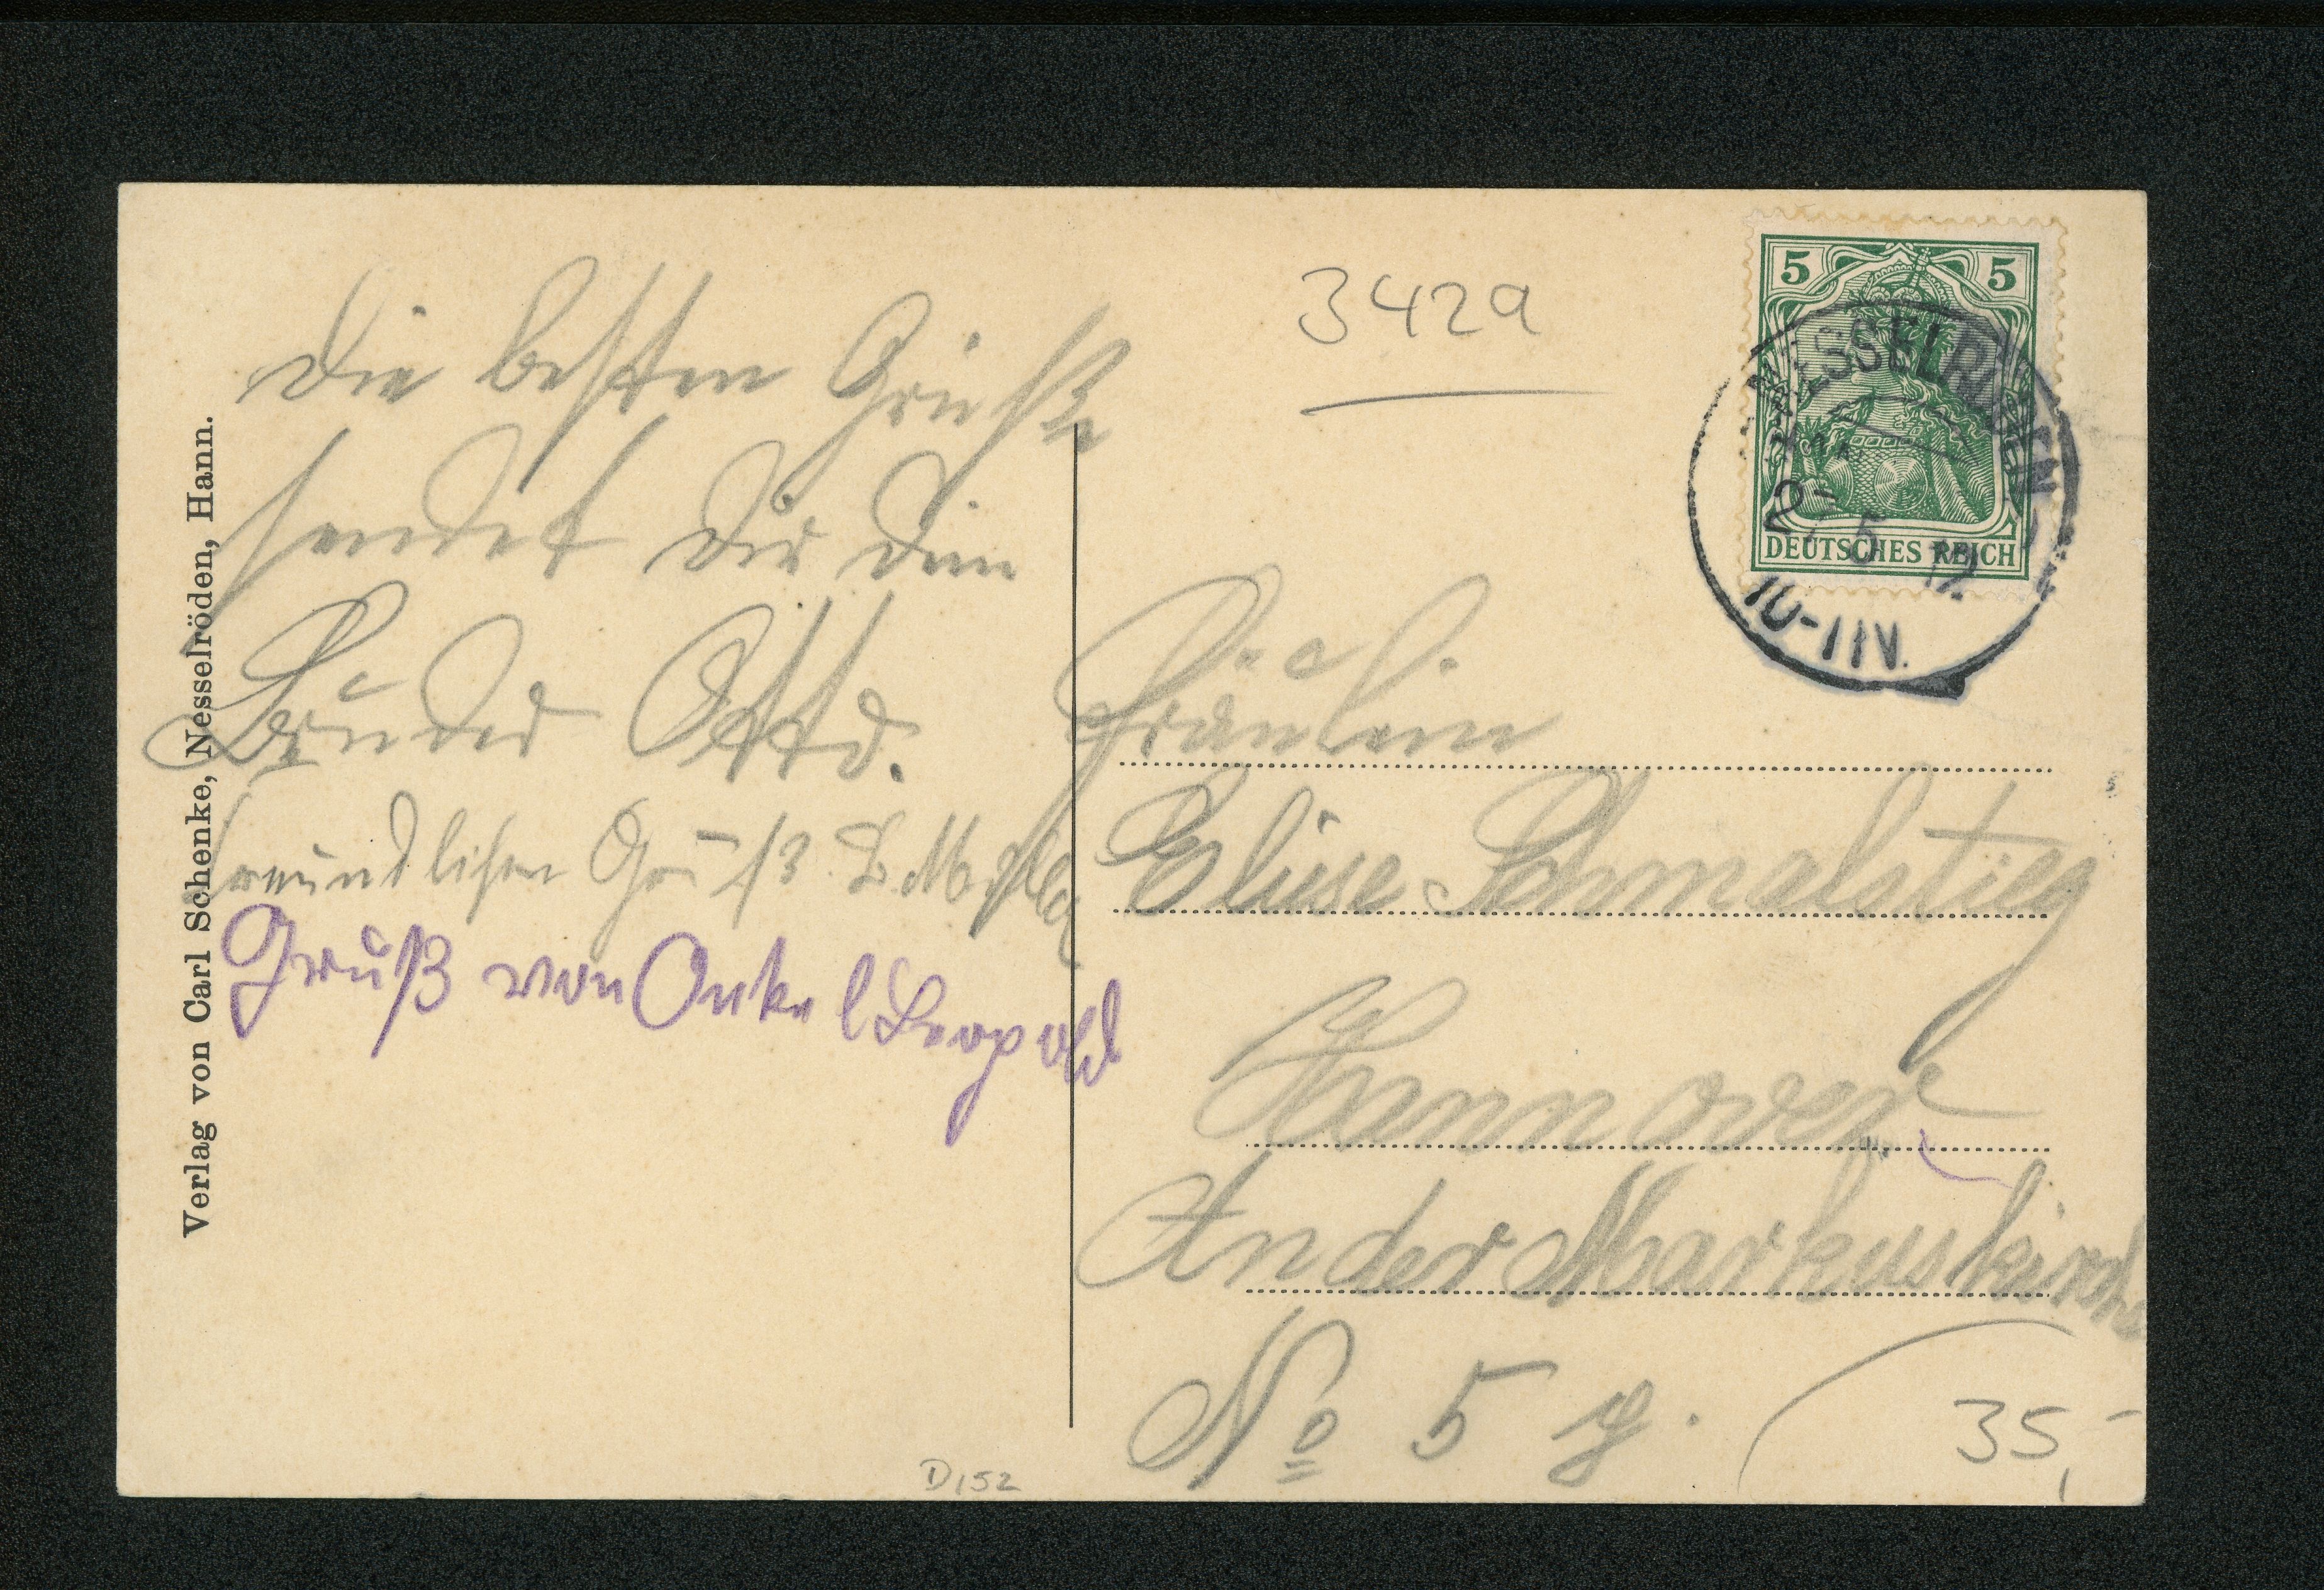 Die besten Grüße
sendet Dir Dein
Bruder Otto.
Freundlichen Gruß
Gruß von Onkel Leopold
Verlag von Carl Schenke, Nesselröden, Hann.
3429
5 5
DEUTSCHES REICH
NESSELRÖDEN
2. 5. 12.
10-11V.
Fräulein
Eluise Schmalstieg
Hannover
An der Markuskirche
No 5
35,-
D152